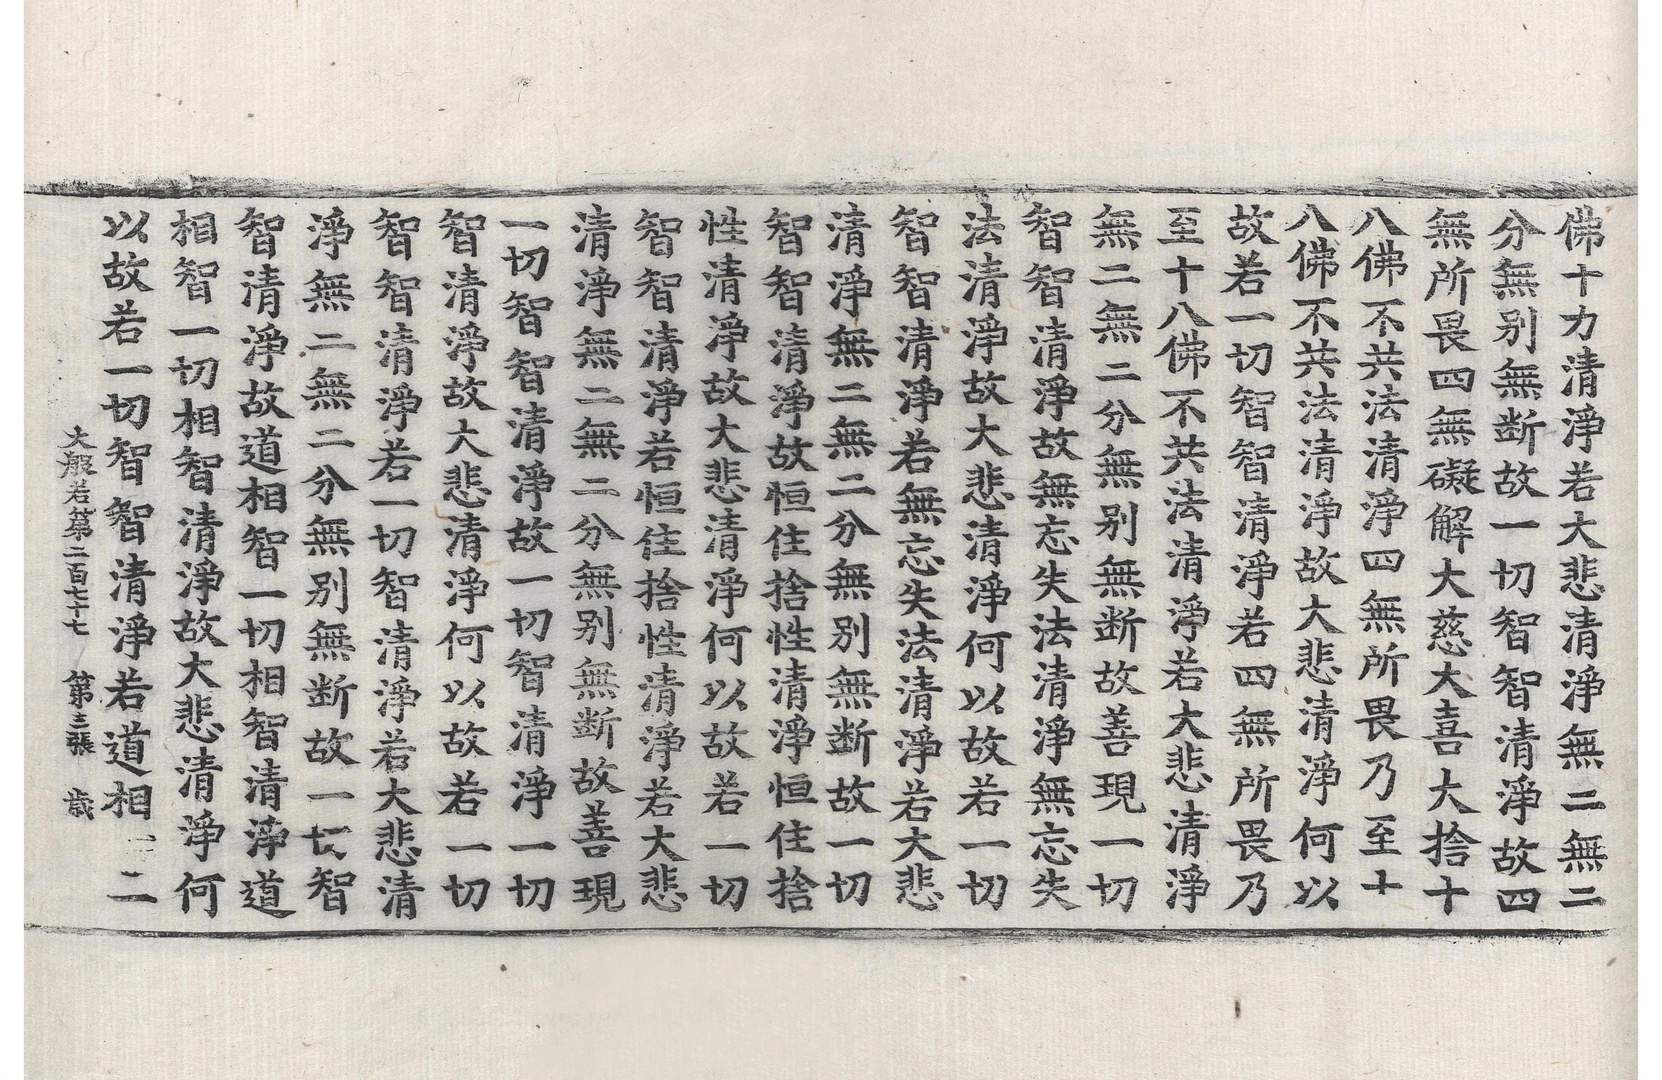 佛十力清淨若大悲清淨無二無二
分無别無断故一切智智清淨故四
無所畏四無礙解大慈大喜大捨十
八佛不共法清淨四無所畏乃至十
八佛不共法清淨故大悲清淨何以
故若一切智智清淨若四無所畏乃
至十八佛不共法清淨若大悲清淨
無二無二分無别無断故善現一切
智智清淨故無忘失法清淨無忘失
法清淨故大悲清淨何以故若一切
智智清淨若無忘失法清淨若大悲
清淨無二無二分無别無断故一切
智智清淨故恒住捨性清淨恒住捨
性清淨故大悲清淨何以故若一切
智智清淨若恒住捨性清淨若大悲
清淨無二無二分無别無断故善現
一切智智清淨故一切智清淨一切
智清淨故大悲清淨何以故若一切
智智清淨若一切智清淨若大悲清
淨無二無二分無别無断故一切智
智清淨故道相智一切相智清淨道
相智一切相智清淨故大悲清淨何
以故若一切智智清淨若道相二
大般若第二百七十七 第三張 歲